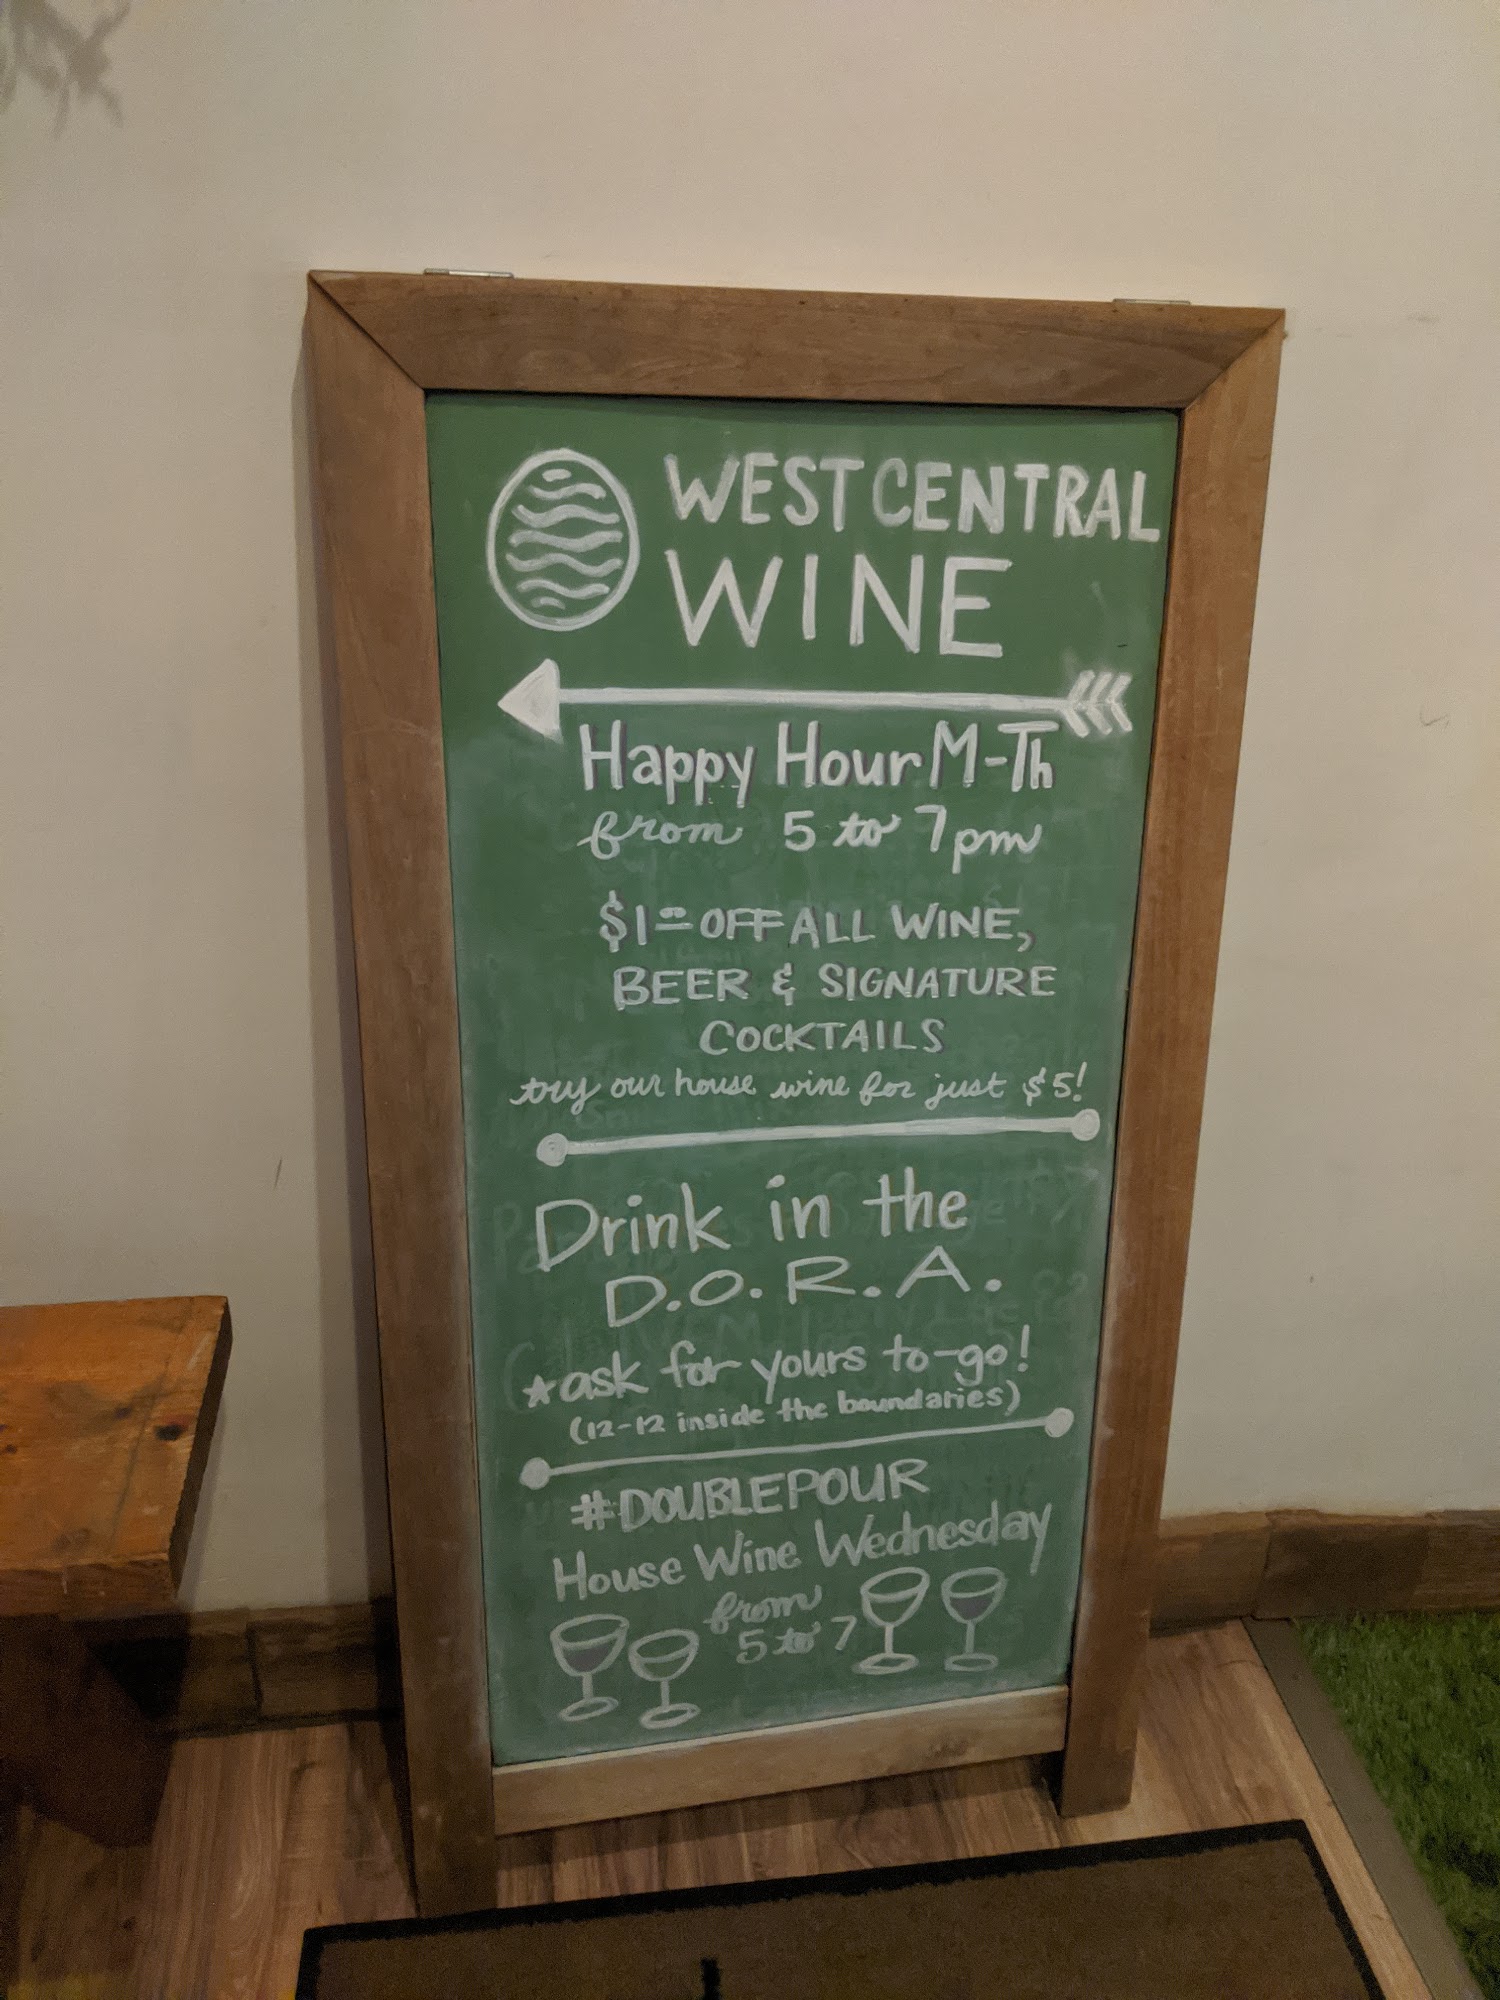 WEST CENTRAL
WINE
Happy Hour M-Th
from 5 to 7pm
$1.00 OFF ALL WINE,
BEER & SIGNATURE
COCKTAILS
try our house wine for just $5!
Drink in the
D.O.R.A.
★ask for yours to-go!
(12-12 inside the boundaries)
#DOUBLEPOUR
House Wine Wednesday
from
5 to 7